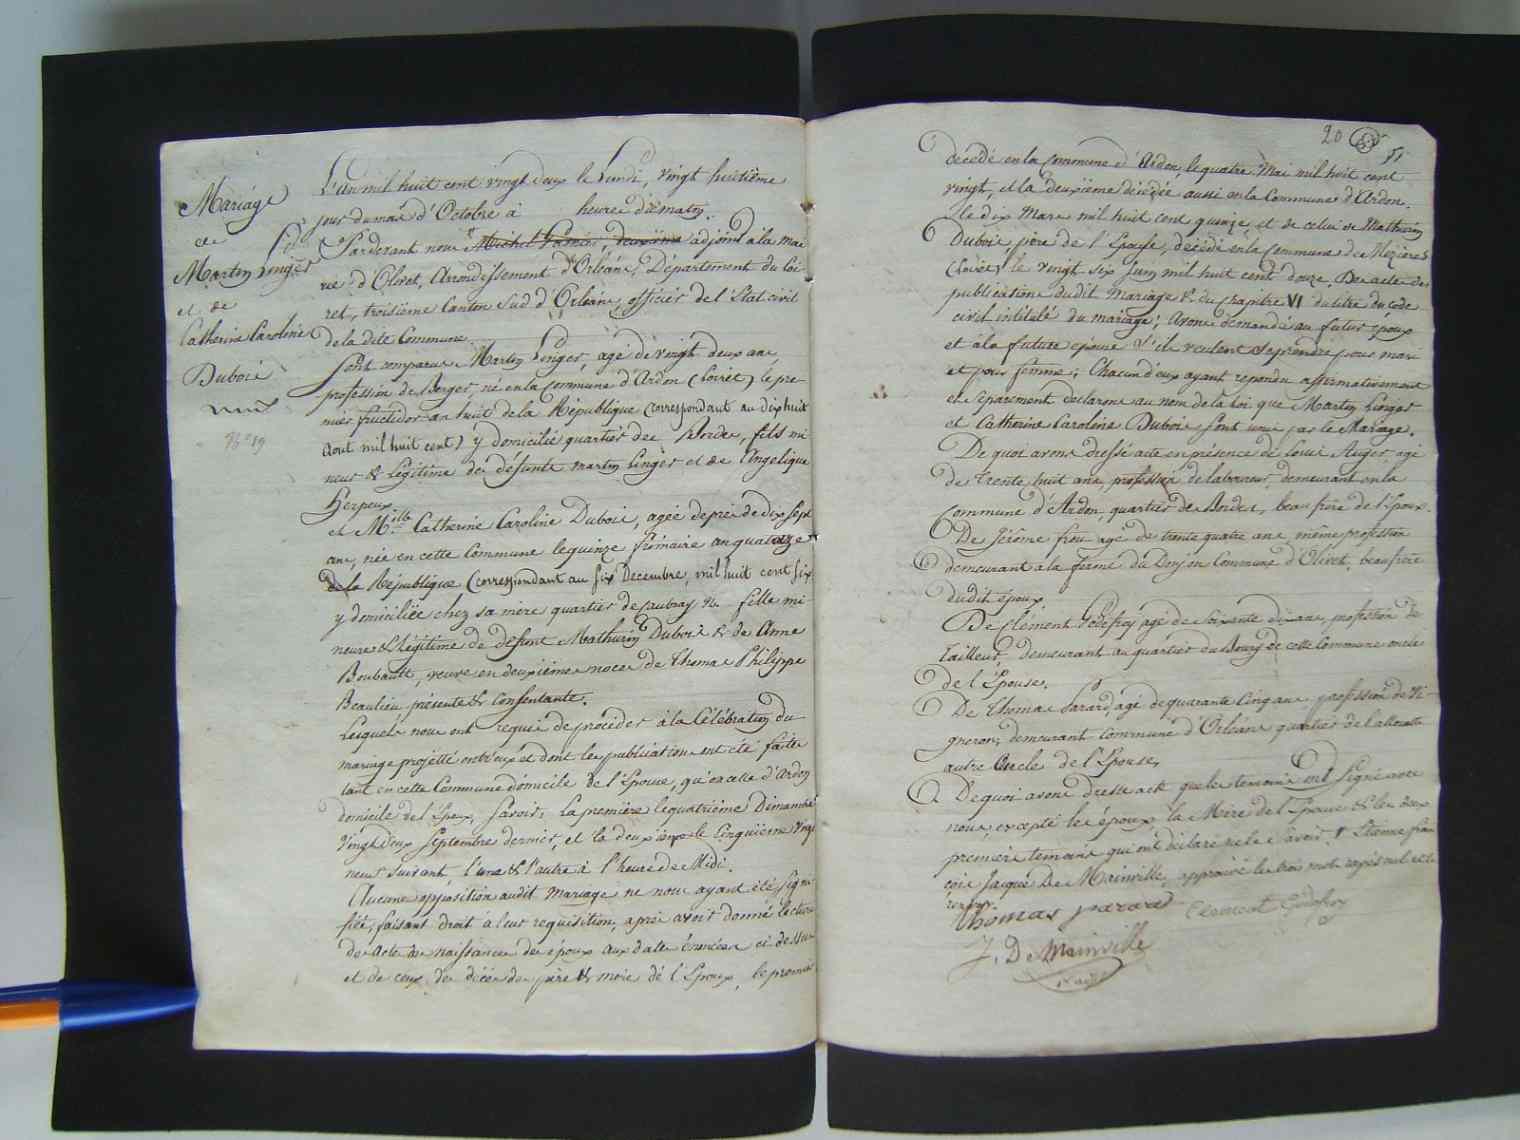 Mariage
de
Martin Linger
et de
Catherine Caroline
Dubois
L'an mil huit cent vingt deux le Lundi, vingt huitième
jour du mois d'Octobre à heures du matin.
Pardevant nous Michel Garnier, deuxième adjoint à la mai
rie d'Olivet, Arrondissement d'Orléans, Département du Loi
ret, troisième Canton Sud d'Orléans, officier de l'Etat civil
de la dite Commune.
Sont comparus Martin Linger, agé de vingt deux ans,
profession de Berger, né en la Commune d'Ardon (Loiret) le pre
mier fructidor an huit de la République (correspondant au dix huit
Aout mil huit cent) y domicilié quartier des Bordes, fils mi
neur & Légitime de défunts Martin Linger et de Angelique
Herpeux
et Mlle Catherine Caroline Dubois, agée de près de dix sept
ans, née en cette Commune le quinze frimaire an quatorze
de la République (correspondant au six Decembre, mil huit cent six
y domiciliée chez sa mère quartier de Caubray &. fille mi-
neure & légitime de defunt Mathurin Dubois & de Anne
Boubault, veuve en deuxièmes noces de Thomas Philippe
Beaulieu présente & Consentante.
Lesquels nous ont requis de procéder à la Célébration du
mariage projetté entr'eux et dont les publications ont été faites
tant en cette Commune domicile de l'Epouse, qu'en celle d'Ardon
domicile de l'Epoux, Savoir: La première le quatrième Dimanche
Vingt deux Septembre dernier, et la deuxième le Cinquième Vingt
neuf suivant l'une & l'autre à l'heure de Midi.
Aucune opposition audit Mariage ne nous ayant été signi
fiée, faisant droit à leur requisition, après avoir donné lecture
des Acte de naissances des époux aux dates énoncées ci dessus
et de ceux des décès des père & mère de l'Epoux, le premier
20
décédé en la Commune d'Ardon, le quatre Mai mil huit cent
vingt, et la deuxième décédée aussi en la Commune d'Ardon
le dix Mars mil huit cent quinze, et de celui de Mathurin
Dubois père de l'Epouse, décédé en la Commune de Mézières
(Loiret) le vingt six Juin mil huit cent douze, Des actes des
publications dudit Mariage & du chapitre VI du titre du code
civil intitulé du mariage; Avons demandé au futur époux
et à la future épouse s'ils veulent se prendre pour mari
et pour femme; Chacun d'eux ayant repondu affirmativement
et séparément declarons au nom de la loi que Martin Linger
et Catherine Caroline Dubois sont unis par le Mariage.
De quoi avons dressé acte en présence de Louis Auger, agé
de trente, huit ans, profession de laboureur, demeurant en la
Commune d'Ardon, quartier des Bordes, beau frère de l'Epoux.
De Jérôme frou agé de trente quatre ans, même profession
demeurant à la ferme du Donjon Commune d'Olivet, beau frère
dudit époux.
De Clément Godefroy agé de Soixante dix ans, profession de
Tailleur, demeurant au quartier du Bourg de cette Commune oncle
de l'Epouse.
De Thomas Parard, agé de quarante Cinq ans profession de Vi-
gneron; demeurant Commune d'Orléans quartier de l'allouette
autre Oncle de l'Epouse,
De quoi avons dressé acte que les temoins ont signé avec
nous, excepté les époux la Mère de l'Epouse & les deux
premiers temoins qui ont déclaré ne le Savoir. Etienne fran
çois Jacques De Mainville, approuvé les trois mots rayés nuls et le
renvoi.
thomas parard Clement Godefroy
J. De Mainville